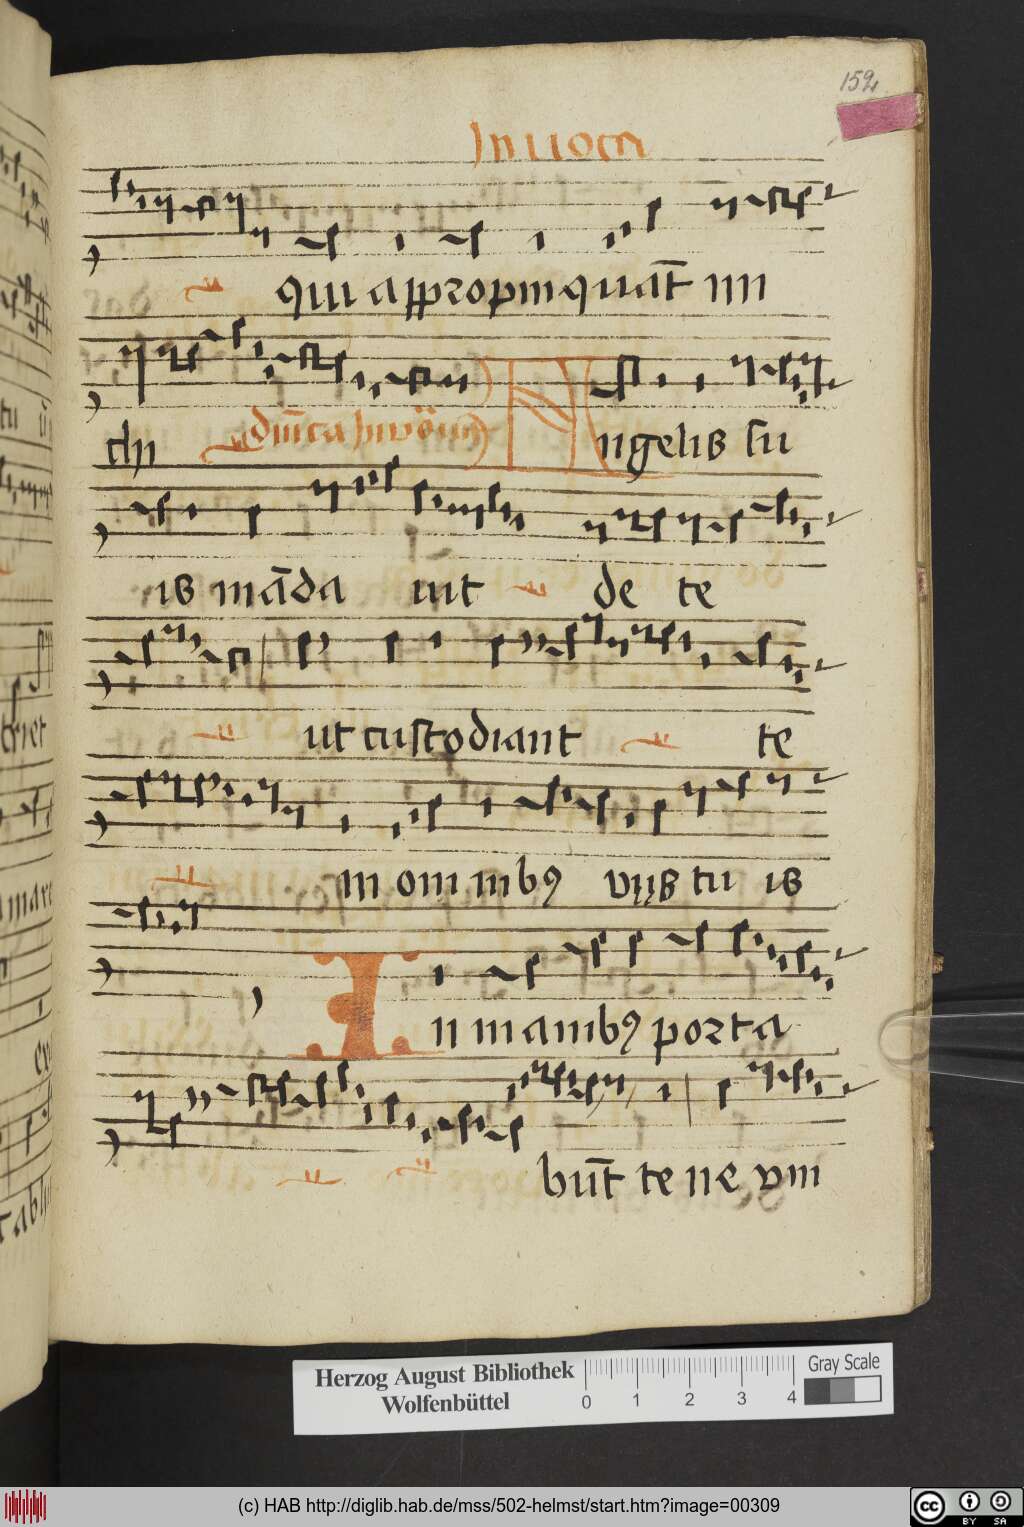 152
Invoca
qui appropinquāt mi
chi Dn̄ica Invoc Angelis su
is māda uit de te
ut custodiant te
in omnibꝰ vijs tu is
In manibꝰ porta
bun̄t te ne vm
Herzog August Bibliothek
Wolfenbüttel
0 1 2 3 4
Gray Scale
(c) HAB http://diglib.hab.de/mss/502-helmst/start.htm?image=00309
cc BY SA